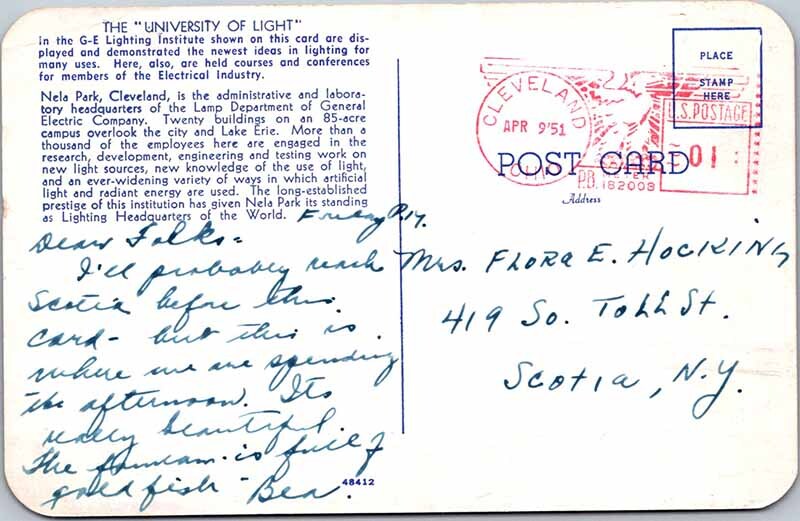 THE "UNIVERSITY OF LIGHT"
In the G-E Lighting Institute shown on this card are dis-
played and demonstrated the newest ideas in lighting for
many uses. Here, also, are held courses and conferences
for members of the Electrical Industry.
Nela Park, Cleveland, is the administrative and labora-
tory headquarters of the Lamp Department of General
Electric Company. Twenty buildings on an 85-acre
campus overlook the city and Lake Erie. More than a
thousand of the employees here are engaged in the
research, development, engineering and testing work on
new light sources, new knowledge of the use of light,
and an ever-widening variety of ways in which artificial
light and radiant energy are used. The long-established
prestige of this institution has given Nela Park its standing
as Lighting Headquarters of the World.
Friday P.M.
Dear Folks=
I'll probably reach
Scotia before this
card- but this is
where we are spending
the afternoon. Its
really beautiful.
The fountain is full of
goldfish - Bea.
48412
PLACE
STAMP
HERE
CLEVELAND
APR 9'51
OHIO
U.S. POSTAGE
01
P.B. METER
182009
POST CARD
Address
Mrs. Flora E. Hocking
419 So. Toll St.
Scotia, N.Y.